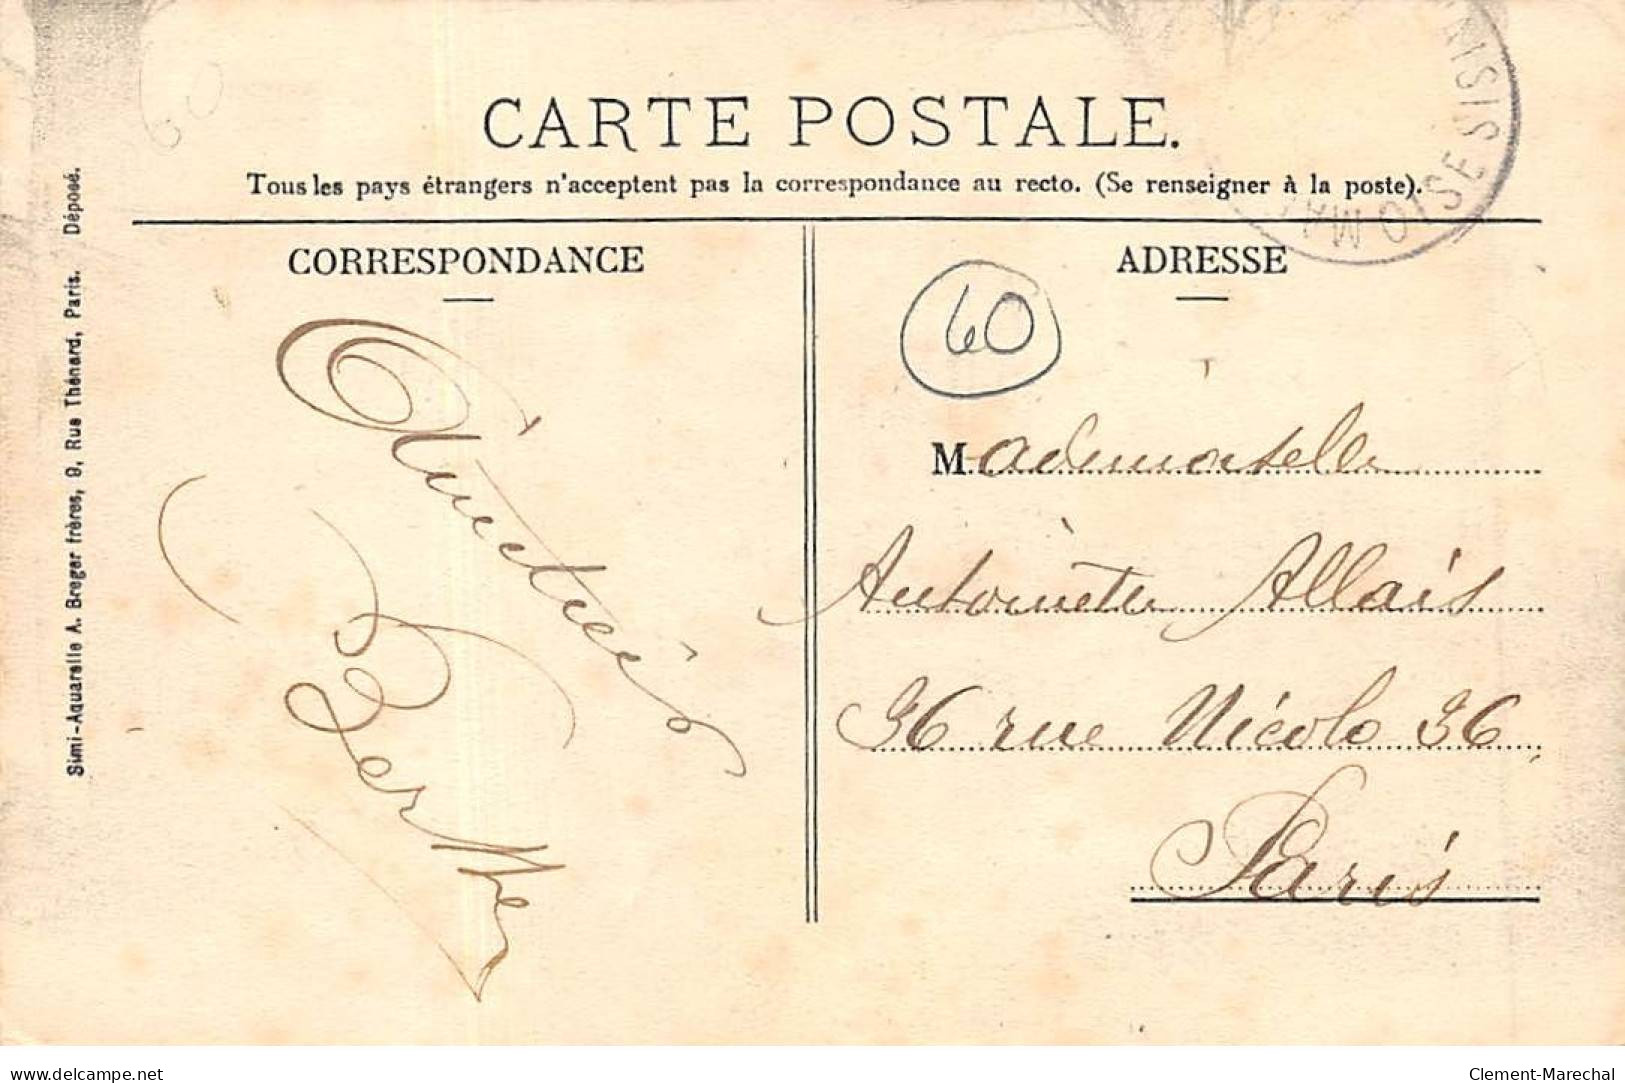 CARTE POSTALE.
Tous les pays étrangers n'acceptent pas la correspondance au recto. (Se renseigner à la poste).
CORRESPONDANCE
Amitiés
Berthe
ADRESSE
60
Mademoiselle
Antoinette Allais
36 rue Nicolo 36
Paris
Simi-Aquarelle A. Breger frères, 9, Rue Thénard, Paris. Déposé.
60
OISE
www.delcampe.net
Clement-Marechal